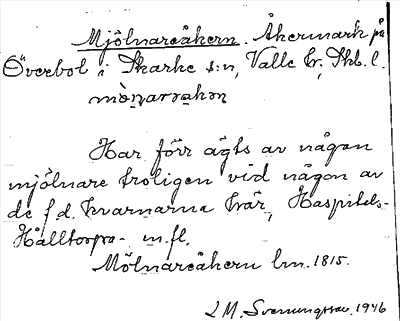 Mjölnareåkern. Åkermark på
Överbol i Skarke s:n, Valle hr, Skb. l.
Har förr ägts av någon
mjölnare troligen vid någon av
de f.d. kvarnarna här, Haspitels-
Hålltorpa- m.fl.
Mölnareåkern lm. 1815.
L.M. Svenungsson 1946